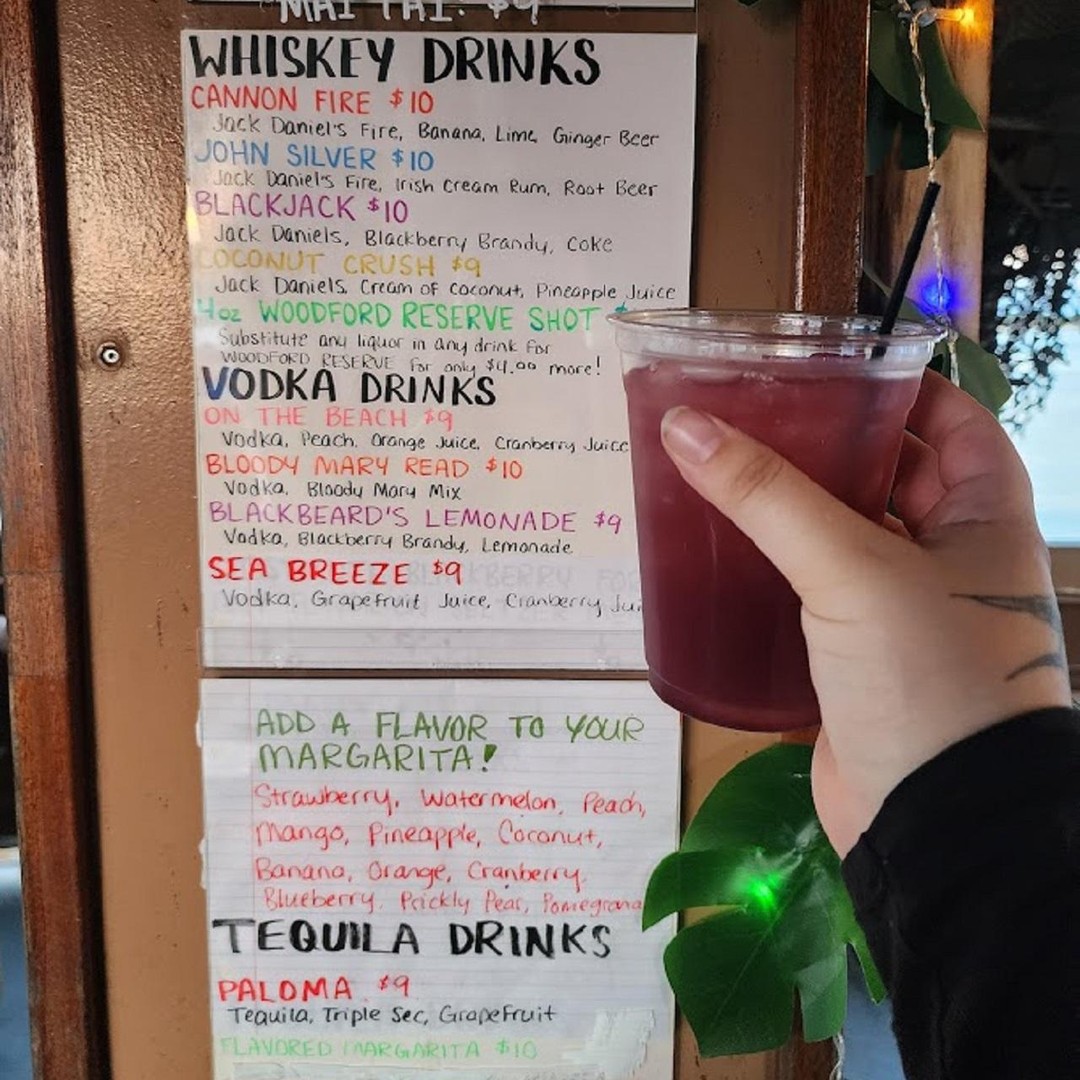 MAI TAI: $9
WHISKEY DRINKS
CANNON FIRE $10
Jack Daniel's Fire, Banana, Lime, Ginger Beer
JOHN SILVER $10
Jack Daniel's Fire, Irish Cream Rum, Root Beer
BLACKJACK $10
Jack Daniels, Blackberry Brandy, Coke
COCONUT CRUSH $9
Jack Daniels, Cream of Coconut, Pineapple Juice
4oz WOODFORD RESERVE SHOT
Substitute any liquor in any drink for
WOODFORD RESERVE for only $4.00 more!
VODKA DRINKS
ON THE BEACH $9
Vodka, Peach, Orange Juice, Cranberry Juice
BLOODY MARY READ $10
Vodka, Bloody Mary Mix
BLACKBEARD'S LEMONADE $9
Vodka, Blackberry Brandy, Lemonade
SEA BREEZE $9
Vodka, Grapefruit Juice, Cranberry
ADD A FLAVOR TO YOUR
MARGARITA!
Strawberry, Watermelon, Peach,
Mango, Pineapple, Coconut,
Banana, Orange, Cranberry,
Blueberry, Prickly Pear, Pomegrana
TEQUILA DRINKS
PALOMA $9
Tequila, Triple Sec, Grapefruit
FLAVORED MARGARITA $10